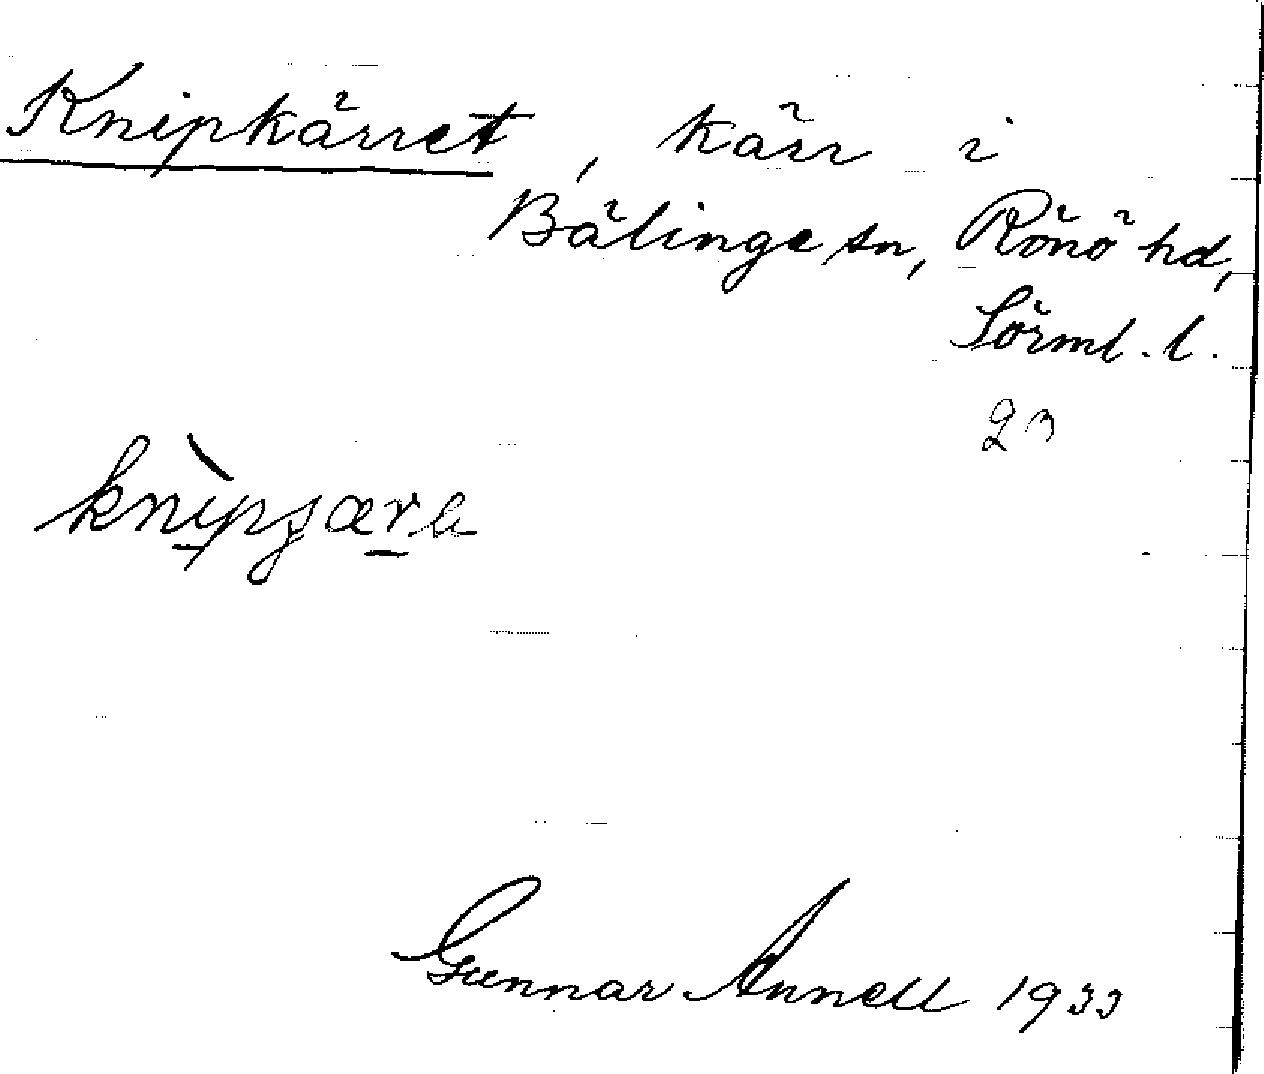 Knipkärret, kärr i
Bälinge sn, Rönö hd,
Sörml. l.
Gunnar Annell 1933